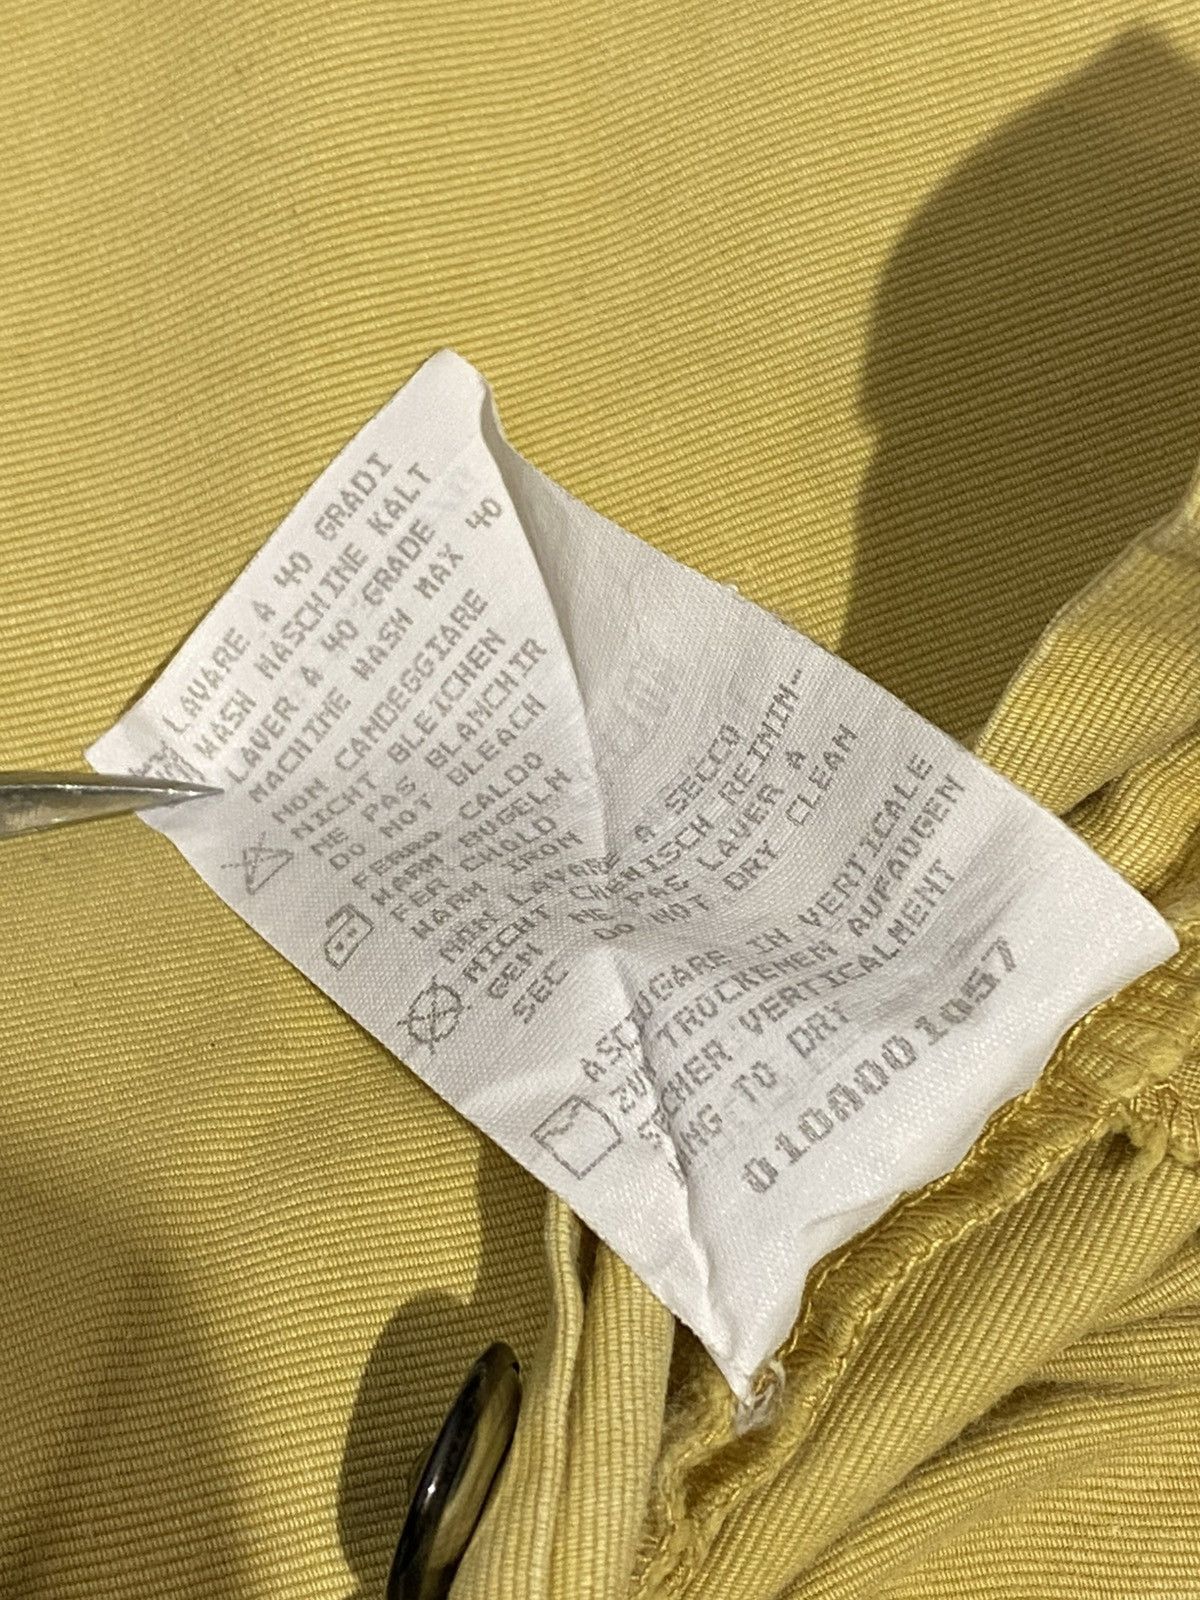 LAVARE A 40 GRADI
WASH MASCHINE KALT
LAVER A 40 GRADE
MACHINE WASH MAX 40
NON CANDEGGIARE
NICHT BLEICHEN
NE PAS BLANCHIR
DO NOT BLEACH
FERRO CALDO
WARM BUGELN
FER CHOLD
WARM IRON
NON LAVARE A SECCO
NICHT CHEMISCH REININ-
GEN NE PAS LAVER A
SEC DO NOT DRY CLEAN
ASCIUGARE IN VERTICALE
ZUM TROCKENEN AUFAUGEN
SECHER VERTICALMENT
HUNG TO DRY
010A001057